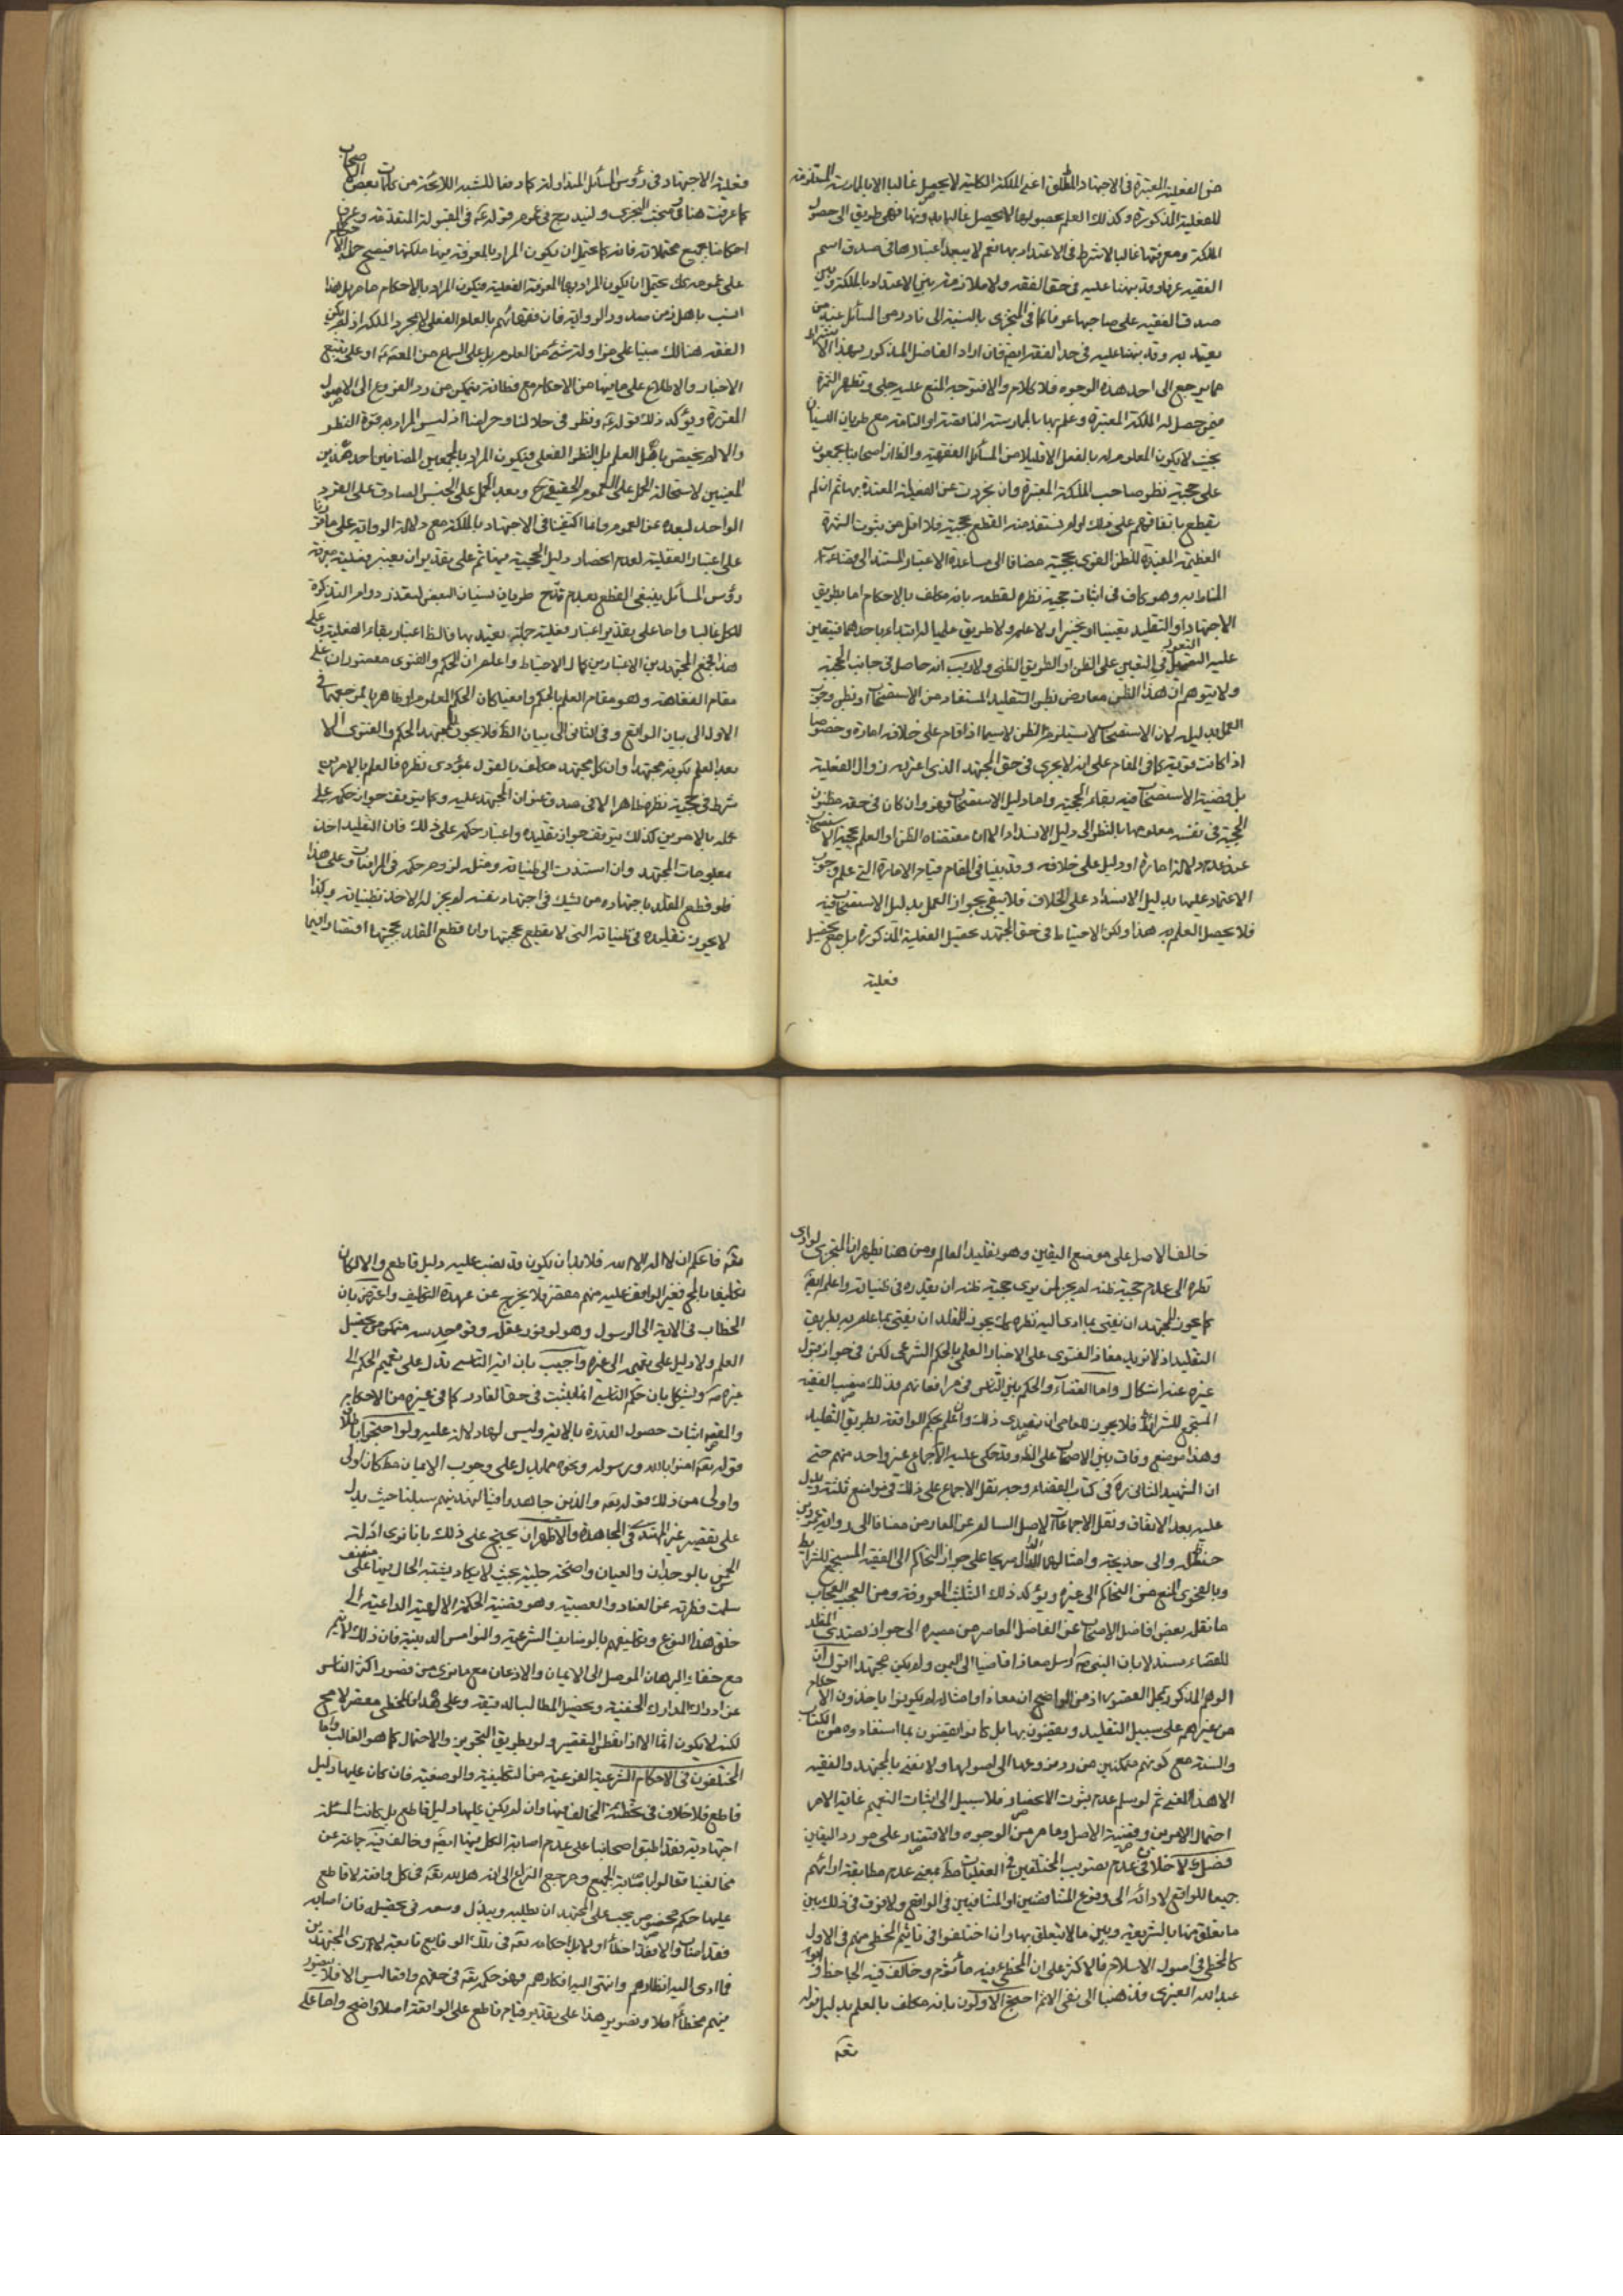 من الفعلية المعتبرة في الاجتهاد المطلق اعني الملكة الكلية لا يحصل غالبا الا بالممارسة المستلزمة
للفعلية المذكورة وكذلك العلم بحصولها لا يحصل غالبا بدونها فهي طريق الى حصول
الملكة ومعرفتها غالبا لا شرط في الاعتداد بها نعم لا يبعد اعتبارها في صدق اسم
الفقيه عرفا وقد نبهنا عليه في حق الفقه ولا ملازمة بين الاعتداد بالملكة وبين
صدق الفقيه على صاحبها عرفا كما في المتجزي بالنسبة الى نادر من المسائل عند من
يعتد به وقد نبهنا عليه في حد الفقه ايضا فان اراد الفاضل المذكور بهذا الاشتراط
ما يرجع الى احد هذه الوجوه فلا كلام والا فتوجه المنع عليه جلي وتظهر الثمرة
فيمن حصل له الملكة المعتبرة وعلم بها بالممارسة الناقصة او التامة مع طريان النسيان
بحيث لا يكون المعلوم له بالفعل الا قليلا من المسائل الفقهية والظ ان اصحابنا مجمعون
على حجية نظر صاحب الملكة المعتبرة وان تجردت عن الفعلية المعتدة بها ثم ان لم
نقطع باتفاقهم على ذلك او لم نستفد منه القطع بحجيته فلا اقل من ثبوت الشهرة
العظيمة المفيدة للظن القوي بحجيته مضافا الى مساعدة الاعتبار المستند الى
المناط به وهو كاف في اثبات حجية نظره لقطعه بانه مكلف بالاحكام اما بطريق
الاجتهاد او التقليد تعيينا او تخييرا ولا علم ولا طريق علميا له ابتداء باحدهما فيتعين
عليه التعويل في التعيين على الظن او الطريق الظني ولا ريب انه حاصل في جانب الحجية
ولا يتوهم ان هذا الظن معارض بظن التقليد المستفاد من الاستصحاب او بظن وجوب
العمل بدليله لان الاستصحاب لا يستلزم الظن لا سيما اذا قام على خلافه امارة وخصوصا
اذا كانت قوية كما في المقام على انه لا يجري في حق المجتهد الذي اعتراه زوال الفعلية
بل قضية الاستصحاب فيه بقاء الحجية واما دليل الاستصحاب فهو وان كان في حقه مظنون
الحجية في نفسه معلومها بالنظر الى دليل الانسداد الا ان مقتضاه الظن او العلم بحجية الاستصحاب
عند عدم دلالة امارة او دليل على خلافه وقد بينا في المقام قيام الامارة التي علم وجوب
الاعتماد عليها بدليل الانسداد على الخلاف فلا يبقى بجواز العمل بدليل الاستصحاب فيه
فلا يحصل العلم به هذا ولكن الاحتياط في حق المجتهد تحصيل الفعلية المذكورة بل مع تحصيل
فعلية
فعلية الاجتهاد في رؤس المسائل المتداولة كما دفعا للشبه اللائحة من كلمات بعض الاصحاب
كما عرفت هنا وفي مبحث التجزي وليندرج في عموم قوله ع في المقبولة المتقدمة وعرف
احكامنا بجميع محتملاته فانه كما يحتمل ان يكون المراد بالمعرفة فيها ملكتها فيصح حمل الاحكام
على عمومه كك يحتمل ان يكون المراد بها المعرفة الفعلية فيكون المراد بالاحكام ما مر بل هذا
انسب باهل زمن صدور الرواية فان فقهائهم بالعلم الفعلي لا بمجرد الملكة اذ لم يكن
الفقه هنالك مبنيا على مزاولة شئ من العلوم بل على السماع من المعصوم او على تتبع
الاخبار والاطلاع على ما فيها من الاحكام مع فطانة يتمكن من رد الفروع الى الاصول
المقررة ويؤكد ذلك قوله ع ونظر في حلالنا وحرامنا اذ ليس المراد به قوة النظر
والا لم يختص باهل العلم بل النظر الفعلي فيكون المراد بالجمعين المضافين احد هذين
المعنيين لاستحالة الحمل على العموم الحقيقي ح وبعد الحمل على الجنس الصادق على الفرد
الواحد لبعده عن العموم وانما اكتفينا في الاجتهاد بالملكة مع دلالة الرواية على ما قررنا
على اعتبار الفعلية لعدم انحصار دليل الحجية فيها ثم على تقدير ان يعتبر فعلية معرفة
رؤس المسائل ينبغي القطع بعدم قدح طريان نسيان البعض لتعذر دوام التذكرة
للكل غالبا واما على تقدير اعتبار فعلية جملة يعتد بها فالظ اعتبار بقاء الفعلية وعلى
هذا فجمع المجتهد بين الاعتبارين كما له الاحتياط واعلم ان الحكم والفتوى مقصوران على
مقام الفقاهة وهو مقام العلم بالحكم واقعيا كان الحكم المعلوم او ظاهريا لمرجعهما في
الاول الى بيان الواقع وفي الثاني الى بيان الظ فلا يجوز للمجتهد الحكم والفتوى الا
بعد العلم بكونه مجتهدا وان كل مجتهد مكلف بالقول بمؤدى نظره فالعلم بالامرين
شرط في حجية نظره ظاهرا لا في صدق عنوان المجتهد عليه وكما يتوقف جواز حكمه على
علمه بالامرين كذلك يتوقف جواز تقليده واعتبار حكمه على ذلك فان التقليد اخذ
بمعلومات المجتهد وان استندت الى ظنياته ومثله لزوم حكمه في المرافعات وعلى هذا
فلو قطع المقلد باجتهاد من يشك في اجتهاد نفسه لم يجز له الاخذ بظنياته وكذا
لا يجوز تقليده في ظنياته التي لا يقطع بحجيتها وان قطع المقلد بحجيتها اقتصارا فيما
خالف الاصل على موضع اليقين وهو تقليد العالم ومن هنا يظهر ان المتجزي لو ادى
نظره الى عدم حجية ظنه لم يجز لمن يرى حجية ظنه ان يقلده في ظنياته واعلم ايضا
كما يجوز للمجتهد ان يفتي بما ادى اليه نظره كك يجوز للمقلد ان يفتي بما علم به بطريق
التقليد اذ لا يزيد مفاد الفتوى على الاخبار العلمي بالحكم الشرعي لكن في جواز قبول
غيره عنه اشكال واما القضاء والحكم بين الناس في مرافعاتهم فذلك منصب الفقيه
المستجمع للشرائط فلا يجوز للعامي ان يتصدى ذلك وان علم بحكم الواقعة بطريق التقليد
وهذا موضع وفاق بين الاصحاب على الظ وقد حكى عليه الاجماع غير واحد منهم حتى
ان الشهيد الثاني ره في كتاب القضاء وحده نقل الاجماع على ذلك في مواضع ثلثة ويدل
عليه بعد الاتفاق ونقل الاجماعات الاصل السالم عن المعارض مضافا الى رواية عمر بن
حنظلة والى خديجة وامثالهما الدال صريحا على جواز التحاكم الى الفقيه المستجمع للشرائط
وبالفحوى المنع من التحاكم الى غيره ويؤكد ذلك الثلث المعروفة ومن العجب العجاب
ما نقله بعض افاضل الاصحاب عن الفاضل المعاصر من مصيره الى جواز تصدي المقلد
للقضاء مستدلا بان النبي ص ارسل معاذا قاضيا الى اليمن ولم يكن مجتهدا اقول ان
الوهم المذكور بمحل القصور اذ من الواضح ان معاذا وامثاله لم يكونوا ياخذون الاحكام
من غيرهم على سبيل التقليد ويقضون بها بل كانوا يقضون بما استفادوه من الكتاب
والسنة مع كونهم متمكنين من رد فروعها الى اصولها ولا نعني بالمجتهد والفقيه
الا هذا المعنى ثم لو سلم عدم ثبوت الانحصار فلا سبيل الى اثبات التعميم غاية الامر
احتمال الامرين وقضية الاصل وما مر من الوجوه والاقتصار على مورد اليقين
فصل لا خلاف في عدم تصويب المختلفين في العقليات مط بمعنى عدم مطابقة ارائهم
جميعا للواقع لادائه الى وقوع المتناقضين او المتنافيين في الواقع ولا فرق في ذلك بين
ما يتعلق منها بالشريعة وبين ما لا يتعلق بها وان اختلفوا في تاثيم المخطي منهم في الاول
كالمخطي في اصول الاسلام فالاكثر على ان المخطي فيه مأثوم وخالف فيه الجاحظ وابو
عبد الله العنبري فذهبا الى نفي الاثم احتج الاولون بانه مكلف بالعلم بدليل قوله
تعه
تعه فاعلم ان لا اله الا الله فلا بد ان يكون قد نصب عليه دليل قاطع والا لكان
تكليفا بالمح فغير الواقف عليه منهم مقصر فلا يخرج عن عهدة التكليف واعترض بان
الخطاب في الاية الى الرسول وهو لوفور عقله وقوة حدسه متمكن من تحصيل
العلم ولا دليل على تعميمه الى غيره واجيب بان اية التاسي تدل على تعميم الحكم الى
غيره ص ويشكل بان حكم التاسي انما يثبت في حق القادر كما في غيره من الاحكام
والمقصود اثبات حصول القدرة بالاية وليس لها دلالة عليه ولو احتجوا باطلاق
قوله تعه امنوا بالله ورسوله ونحوه مما يدل على وجوب الايمان مط كان اولى
واولى من ذلك قوله تعه والذين جاهدوا فينا لنهدينهم سبلنا حيث يدل
على تقصير غير المهتدي في المجاهدة والاظهر ان يحتج على ذلك بانا نرى ادلة
الحق بالوجدان والعيان واضحة جلية بحيث لا يكاد يشتبه الحال فيها على منصف
سلمت فطرته عن العناد والعصبية وهو قضية الحكمة الالهية الداعية الى
خلق هذا النوع وتكليفهم بالوظايف الشرعية والنواميس الدينية فان ذلك لا يتم
مع خفاء البرهان الموصل الى الايمان والاذعان مع ما نرى من قصور اكثر الناس
عن ادراك المدارك الخفية وتحصيل المطالب الدقيقة وعلى هذا فالمخطي مقصر لا مح
لكنه لا يكون اثما الا اذا تفطن بالتقصير ولو بطريق التجويز والاحتمال كما هو الغالب واما
المختلفون في الاحكام الشرعية الفرعية من التكليفية والوضعية فان كان عليها دليل
قاطع فلا خلاف في تخطئة المخالف فيها وان لم يكن عليها دليل قاطع بل كانت المسئلة
اجتهادية فقد اطبق اصحابنا على عدم اصابة الكل فيها ايضا وخالف فيه جماعة من
مخالفينا فقالوا باصابة الجميع ومرجع النزاع الى انه هل لله تعه في كل واقعة لا قاطع
عليها حكم مخصوص يجب على المجتهد ان يطلبه ويبذل وسعه في تحصيله فان اصابه
فقد اصاب والا فقد اخطأ او لا بل احكامه تعه في تلك الوقايع تابعة لآرى المجتهدين
فما ادى اليه انظارهم وانتهى اليه افكارهم فهو حكمه تعه في حقهم واقعا ليس الا فلا يتصور
منهم مخطأ اصلا وتصوير هذا على تقدير قيام قاطع على الواقعة اصلا واضح واما على